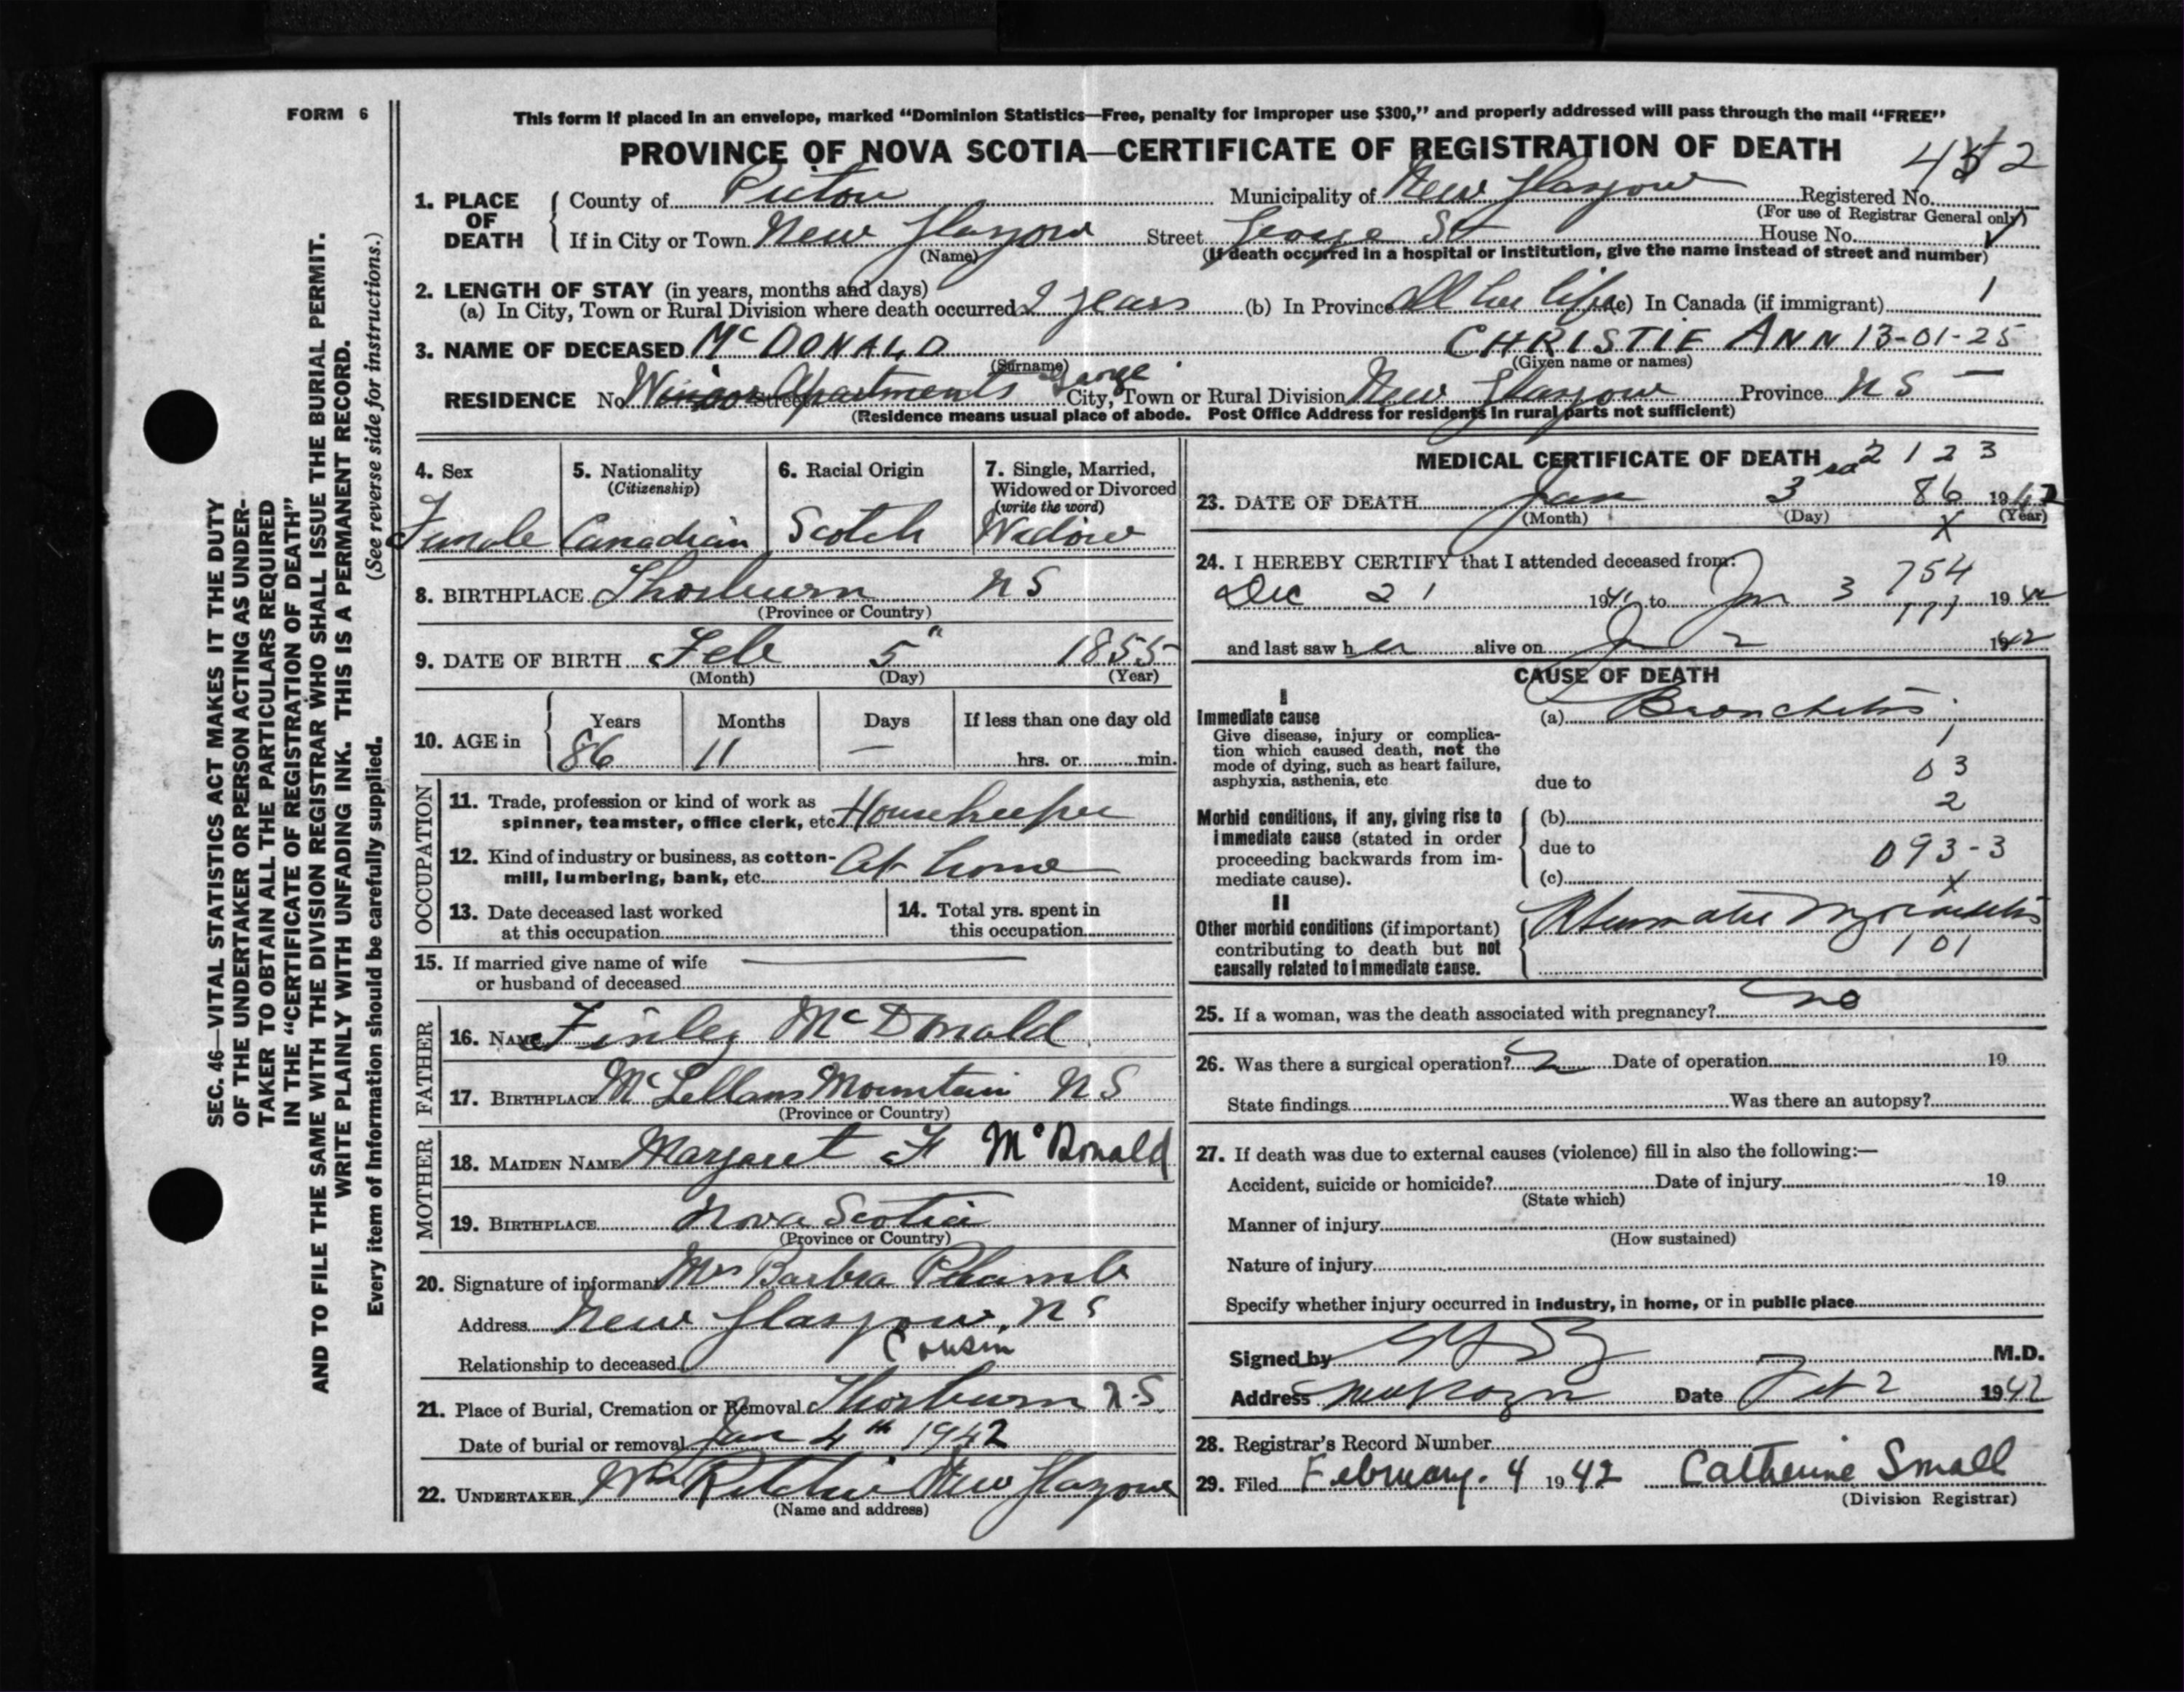 FORM 6
This form if placed in an envelope, marked “Dominion Statistics—Free, penalty for improper use $300,” and properly addressed will pass through the mail “FREE”
PROVINCE OF NOVA SCOTIA—CERTIFICATE OF REGISTRATION OF DEATH
1. PLACE OF DEATH County of Pictou Municipality of New Glasgow Registered No.
(For use of Registrar General only)
If in City or Town New Glasgow Street George St House No.
(Name) (If death occurred in a hospital or institution, give the name instead of street and number)
2. LENGTH OF STAY (in years, months and days) 1
(a) In City, Town or Rural Division where death occurred 2 years (b) In Province all her life (c) In Canada (if immigrant)
3. NAME OF DECEASED McDONALD CHRISTIE ANN 13-01-25
(Surname) (Given name or names)
RESIDENCE No. Street Apartments George City, Town or Rural Division New Glasgow Province N S
(Residence means usual place of abode. Post Office Address for residents in rural parts not sufficient)
4. Sex Female
5. Nationality (Citizenship) Canadian
6. Racial Origin Scotch
7. Single, Married, Widowed or Divorced (write the word) Widow
8. BIRTHPLACE Thorburn N S
(Province or Country)
9. DATE OF BIRTH Feb 5" 1855
(Month) (Day) (Year)
10. AGE in Years Months Days If less than one day old
86 11 — hrs. or min.
OCCUPATION
11. Trade, profession or kind of work as
spinner, teamster, office clerk, etc. Housekeeper
12. Kind of industry or business, as cotton-
mill, lumbering, bank, etc. At home
13. Date deceased last worked
at this occupation
14. Total yrs. spent in
this occupation
15. If married give name of wife
or husband of deceased
FATHER
16. NAME Finley McDonald
17. BIRTHPLACE McLellans Mountain N S
(Province or Country)
MOTHER
18. MAIDEN NAME Margaret F McDonald
19. BIRTHPLACE Nova Scotia
(Province or Country)
20. Signature of informant Mrs Barbra
Address New Glasgow, N S
Relationship to deceased Cousin
21. Place of Burial, Cremation or Removal Thorburn N.S.
Date of burial or removal Jan 4th 1942
22. UNDERTAKER Wm Ritchie New Glasgow
(Name and address)
MEDICAL CERTIFICATE OF DEATH 2 1 2 3
23. DATE OF DEATH Jan 3rd 86 1942
(Month) (Day) (Year)
X
24. I HEREBY CERTIFY that I attended deceased from:
754
Dec 21 1941 to Jan 3 1942
and last saw her alive on Jan 2 1942
CAUSE OF DEATH
I
Immediate cause (a) Bronchitis
Give disease, injury or complica-
tion which caused death, not the
mode of dying, such as heart failure,
asphyxia, asthenia, etc
due to
1
03
2
Morbid conditions, if any, giving rise to (b)
immediate cause (stated in order
proceeding backwards from im- due to 093-3
mediate cause). (c) X
II
Other morbid conditions (if important) Rheumatic Myocarditis
contributing to death but not 101
causally related to immediate cause.
25. If a woman, was the death associated with pregnancy? no
26. Was there a surgical operation? Date of operation 19
State findings Was there an autopsy?
27. If death was due to external causes (violence) fill in also the following:—
Accident, suicide or homicide? Date of injury 19
(State which)
Manner of injury
(How sustained)
Nature of injury
Specify whether injury occurred in industry, in home, or in public place
Signed by M.D.
Address Date 2 1942
28. Registrar's Record Number
29. Filed February. 4 1942 Catherine Small
(Division Registrar)
SEC. 46—VITAL STATISTICS ACT MAKES IT THE DUTY
OF THE UNDERTAKER OR PERSON ACTING AS UNDER-
TAKER TO OBTAIN ALL THE PARTICULARS REQUIRED
IN THE “CERTIFICATE OF REGISTRATION OF DEATH”
AND TO FILE THE SAME WITH THE DIVISION REGISTRAR WHO SHALL ISSUE THE BURIAL PERMIT.
WRITE PLAINLY WITH UNFADING INK. THIS IS A PERMANENT RECORD.
Every item of Information should be carefully supplied. (See reverse side for instructions.)